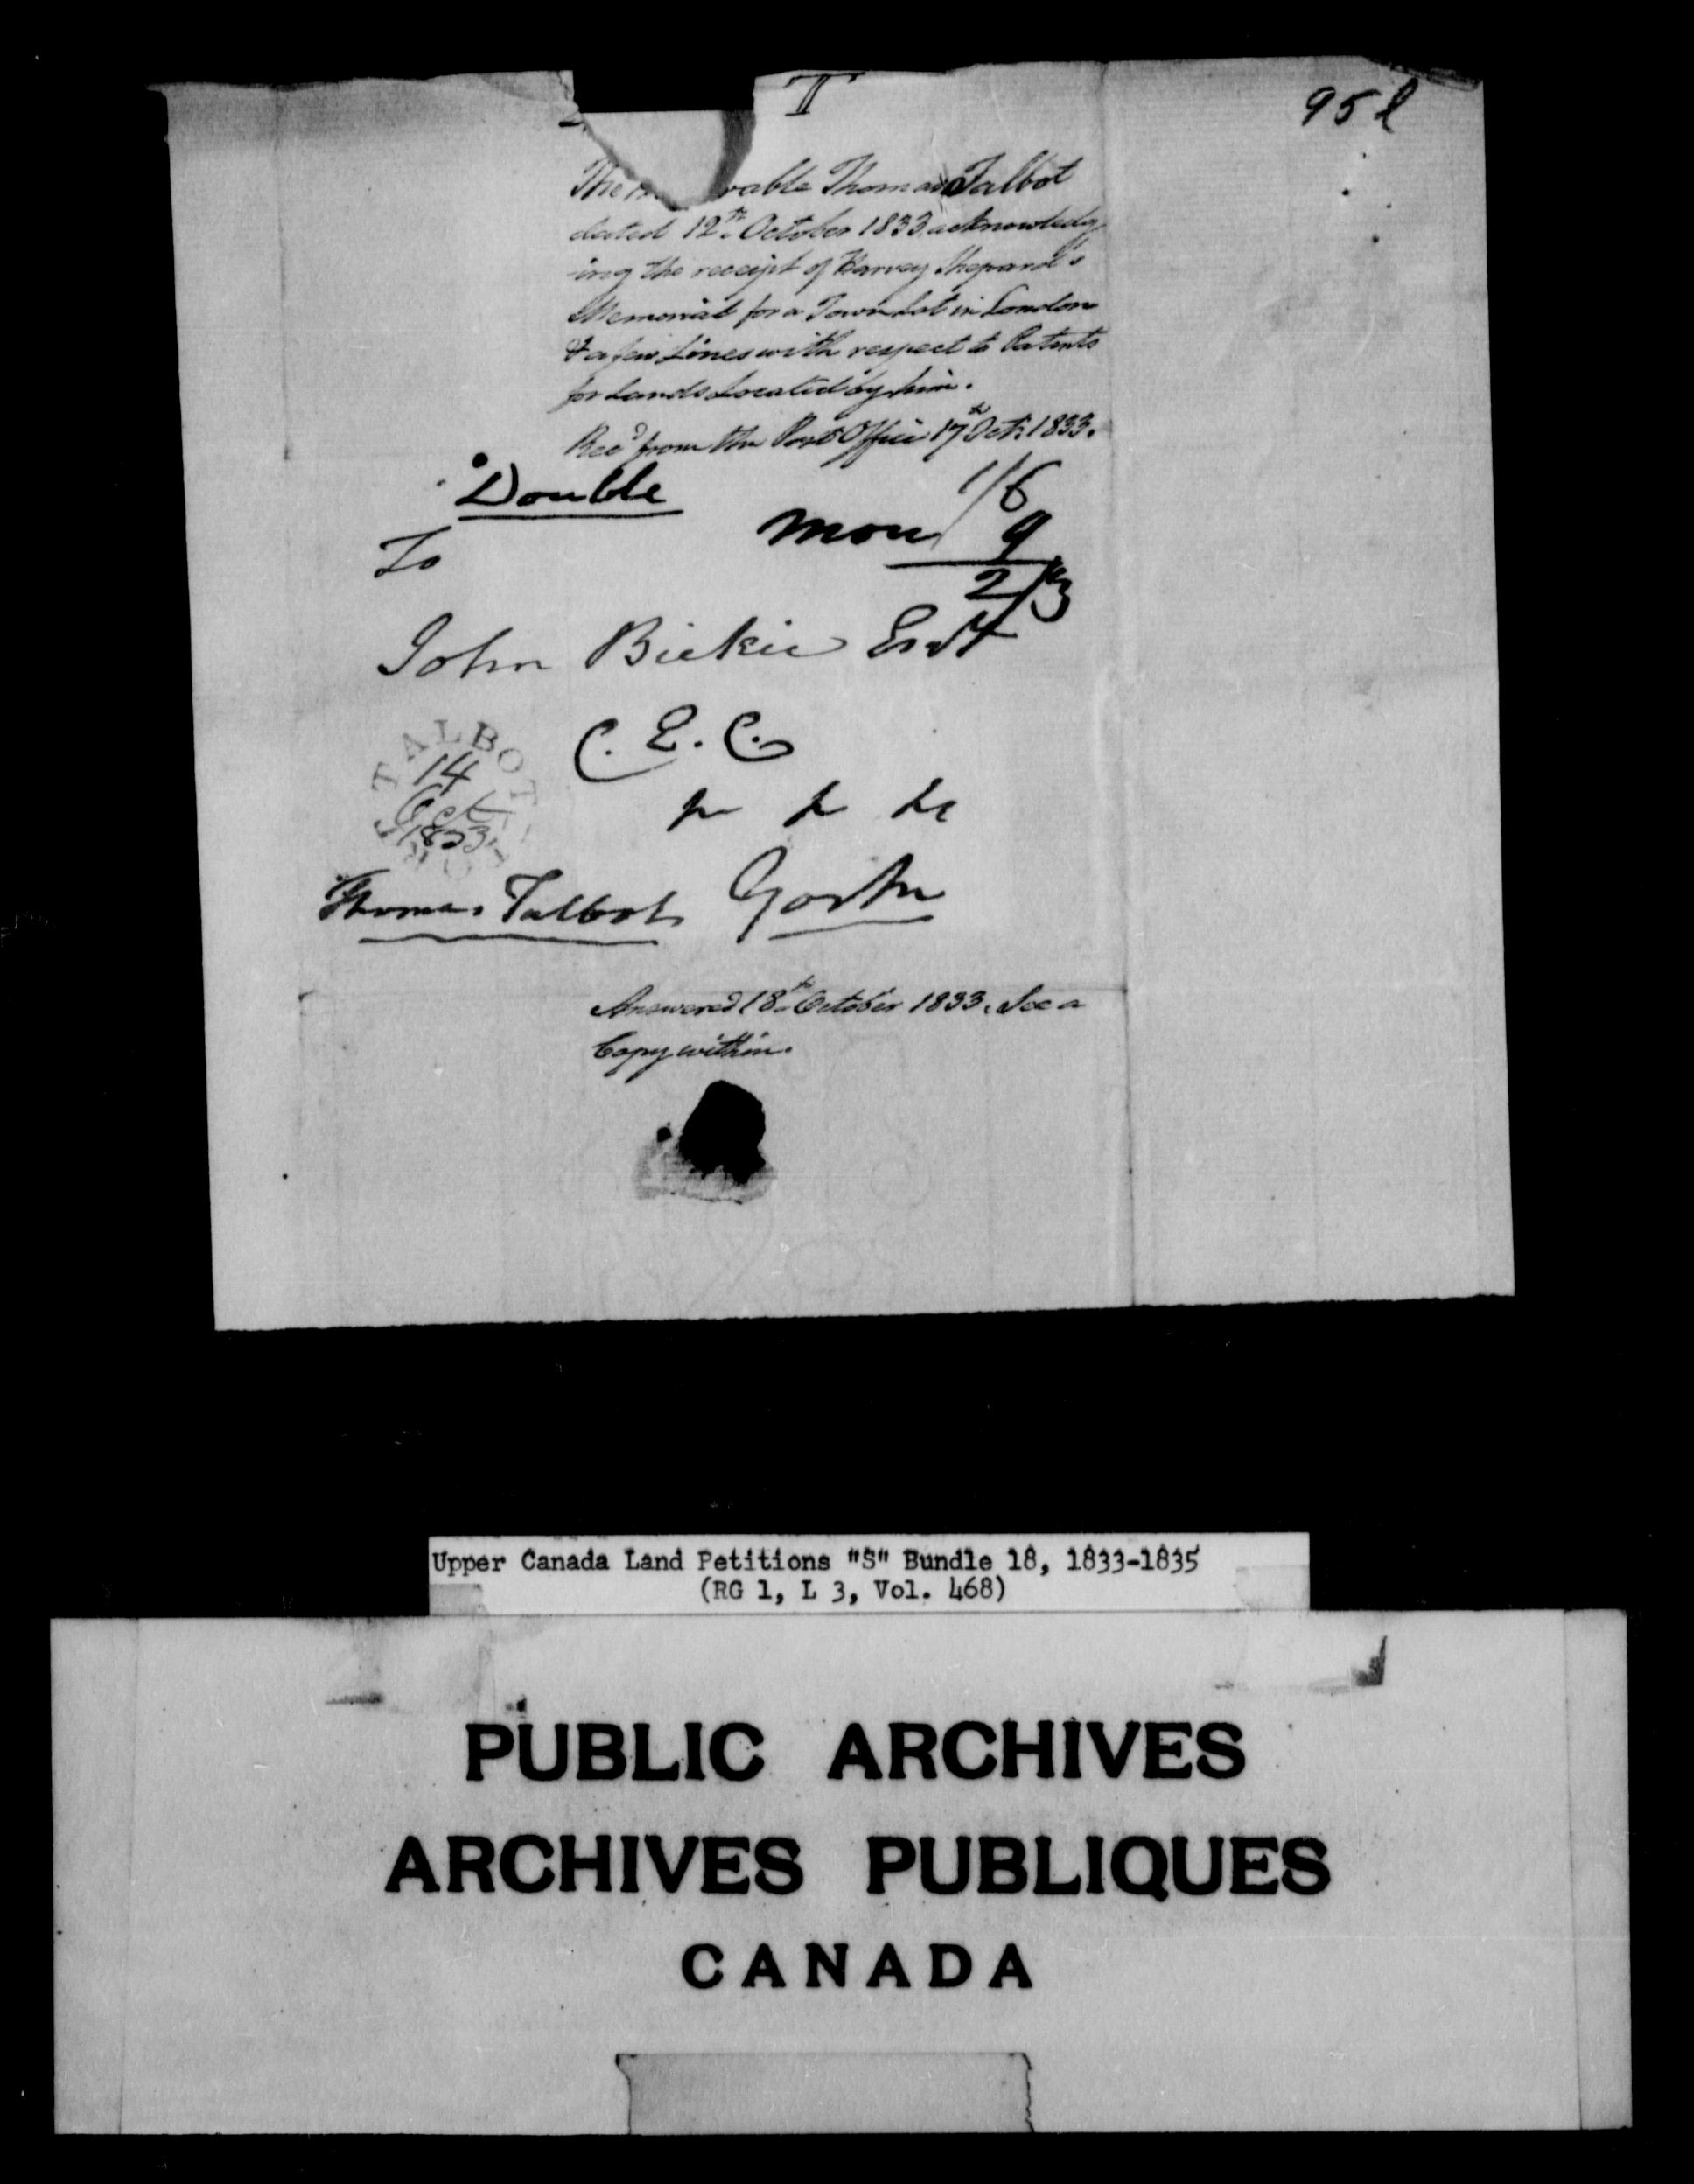 T
95 l
The Honorable Thomas Talbot
dated 12th October 1833 acknowledg
-ing the receipt of Harvey Shepard's
Memorial for a Town Lot in London
& a few Lines with respect to Patents
for Lands Located by him.
Recd from the Post Office 17th Octr 1833.
Double
1/6
mou 9
2/3
To
John Bickie Esqr
C. E. C.
TALBOT
14
Oct
1833
Thomas Talbot York
Answered 18th October 1833. See a
Copy within.
Upper Canada Land Petitions "S" Bundle 18, 1833-1835
(RG 1, L 3, Vol. 468)
PUBLIC ARCHIVES
ARCHIVES PUBLIQUES
CANADA